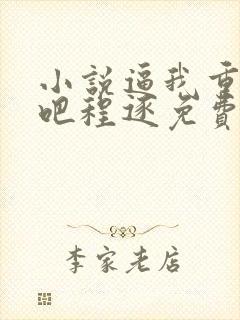 小説逼我重
吧程逐免費
李家老店